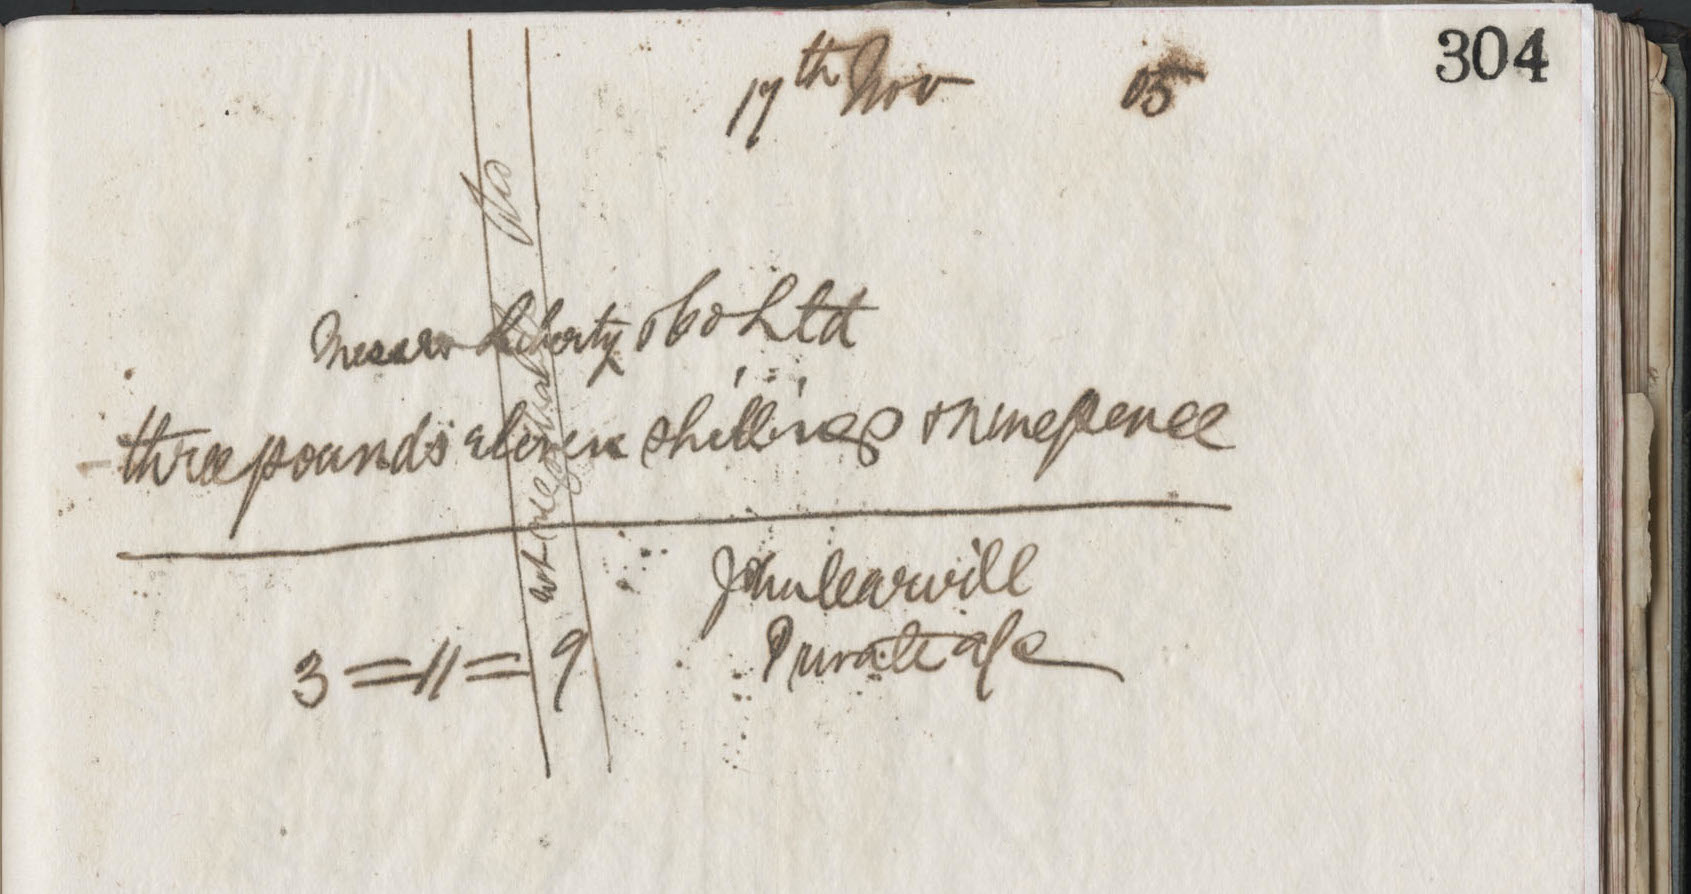 304
17th Nov 05
Messrs Liberty & Co Ltd
three pounds eleven shillings & ninepence
not negotiable & Co
John Carwill
Private a/c
3=11=9